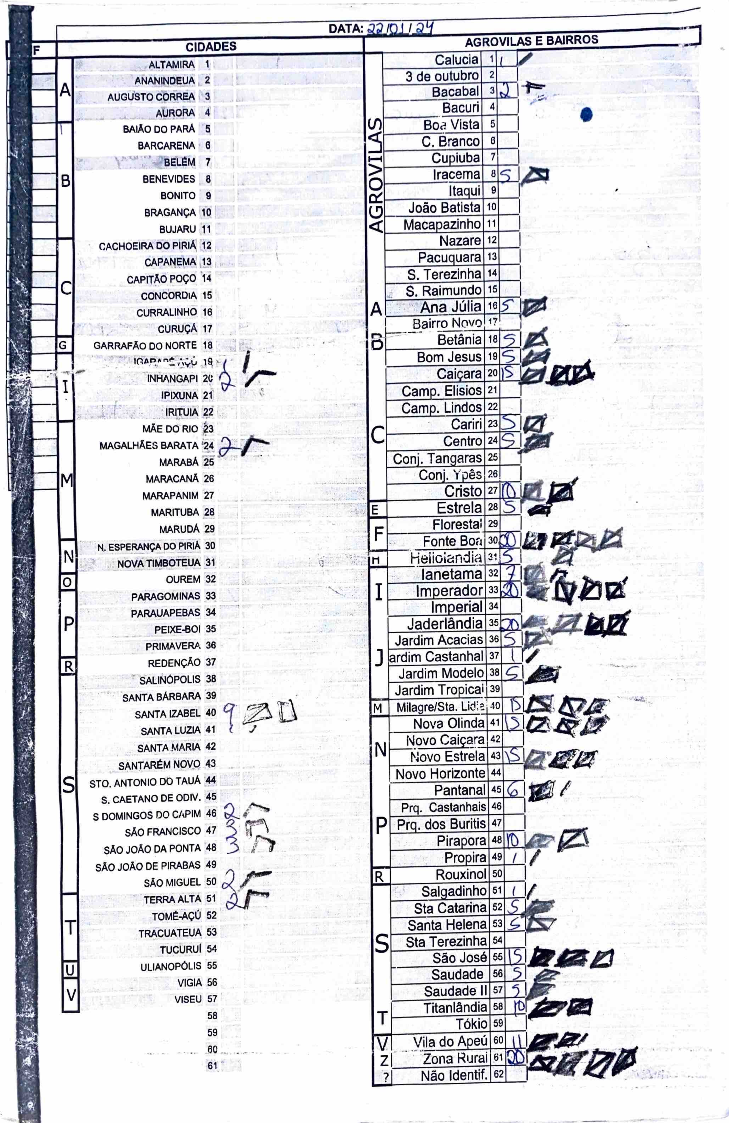 DATA: 22/01/24
F
CIDADES
A
ALTAMIRA 1
ANANINDEUA 2
AUGUSTO CORREA 3
AURORA 4
B
BAIÃO DO PARÁ 5
BARCARENA 6
BELÉM 7
BENEVIDES 8
BONITO 9
BRAGANÇA 10
BUJARU 11
C
CACHOEIRA DO PIRIÁ 12
CAPANEMA 13
CAPITÃO POÇO 14
CONCORDIA 15
CURRALINHO 16
CURUÇÁ 17
G
GARRAFÃO DO NORTE 18
I
IGARAPÉ AÇÚ 19 1
INHANGAPI 20 2
IPIXUNA 21
IRITUIA 22
M
MÃE DO RIO 23
MAGALHÃES BARATA 24 2
MARABÁ 25
MARACANÃ 26
MARAPANIM 27
MARITUBA 28
MARUDÁ 29
N
N. ESPERANÇA DO PIRIÁ 30
NOVA TIMBOTEUA 31
O
OUREM 32
P
PARAGOMINAS 33
PARAUAPEBAS 34
PEIXE-BOI 35
PRIMAVERA 36
R
REDENÇÃO 37
S
SALINÓPOLIS 38
SANTA BÁRBARA 39
SANTA IZABEL 40 9
SANTA LUZIA 41 1
SANTA MARIA 42
SANTARÉM NOVO 43
STO. ANTONIO DO TAUÁ 44
S. CAETANO DE ODIV. 45
S DOMINGOS DO CAPIM 46 2
SÃO FRANCISCO 47 3
SÃO JOÃO DA PONTA 48 3
SÃO JOÃO DE PIRABAS 49
SÃO MIGUEL 50 2
T
TERRA ALTA 51 2
TOMÉ-AÇÚ 52
TRACUATEUA 53
TUCURUÍ 54
U
ULIANÓPOLIS 55
V
VIGIA 56
VISEU 57
58
59
60
61
AGROVILAS E BAIRROS
AGROVILAS
Calucia 1 1
3 de outubro 2
Bacabal 3 2
Bacuri 4
Boa Vista 5
C. Branco 6
Cupiuba 7
Iracema 8 5
Itaqui 9
João Batista 10
Macapazinho 11
Nazare 12
Pacuquara 13
S. Terezinha 14
S. Raimundo 15
A
Ana Júlia 16 5
Bairro Novo 17
B
Betânia 18 5
Bom Jesus 19 5
Caiçara 20 15
Camp. Elisios 21
Camp. Lindos 22
C
Cariri 23 5
Centro 24 5
Conj. Tangaras 25
Conj. Ypês 26
Cristo 27 10
E
Estrela 28 5
F
Florestal 29
Fonte Boa 30 20
H
Heliolandia 31 5
I
Ianetama 32 7
Imperador 33 20
Imperial 34
J
Jaderlândia 35 20
Jardim Acacias 36 5
ardim Castanhal 37 1
Jardim Modelo 38 5
Jardim Tropical 39
M
Milagre/Sta. Lidia 40 15
N
Nova Olinda 41 15
Novo Caiçara 42
Novo Estrela 43 15
Novo Horizonte 44
P
Pantanal 45 6
Prq. Castanhais 46
Prq. dos Buritis 47
Pirapora 48 10
Propira 49 1
R
Rouxinol 50
S
Salgadinho 51 1
Sta Catarina 52 5
Santa Helena 53 5
Sta Terezinha 54
São José 55 15
Saudade 56 5
Saudade II 57 5
T
Titanlândia 58 10
Tókio 59
V
Vila do Apeú 60 11
Z
Zona Rural 61 20
?
Não Identif. 62